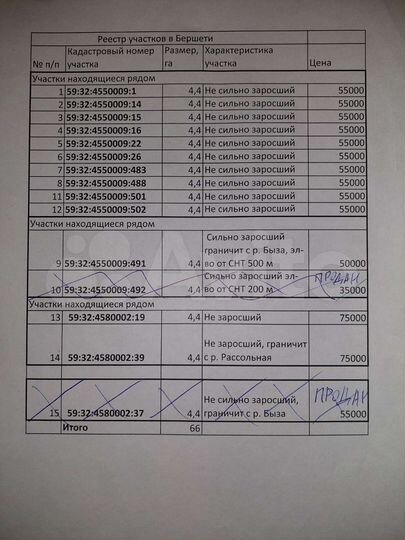 Реестр участков в Бершети
№ п/п Кадастровый номер участка Размер, га Характеристика участка Цена
Участки находящиеся рядом
1 59:32:4550009:1 4,4 Не сильно заросший 55000
2 59:32:4550009:14 4,4 Не сильно заросший 55000
3 59:32:4550009:15 4,4 Не сильно заросший 55000
4 59:32:4550009:16 4,4 Не сильно заросший 55000
5 59:32:4550009:22 4,4 Не сильно заросший 55000
6 59:32:4550009:26 4,4 Не сильно заросший 55000
7 59:32:4550009:483 4,4 Не сильно заросший 55000
8 59:32:4550009:488 4,4 Не сильно заросший 55000
11 59:32:4550009:501 4,4 Не сильно заросший 55000
12 59:32:4550009:502 4,4 Не сильно заросший 55000
Участки находящиеся рядом
Сильно заросший
граничит с р. Быза, эл-
9 59:32:4550009:491 4,4 во от СНТ 500 м 50000
Сильно заросший эл- ПРОДАН
10 59:32:4550009:492 4,4 во от СНТ 200 м 35000
Участки находящиеся рядом
13 59:32:4580002:19 4,4 Не заросший 75000
Не заросший, граничит
14 59:32:4580002:39 4,4 с р. Рассольная 75000
Не сильно заросший, ПРОДАН
15 59:32:4580002:37 4,4 граничит с р. Быза 55000
Итого 66